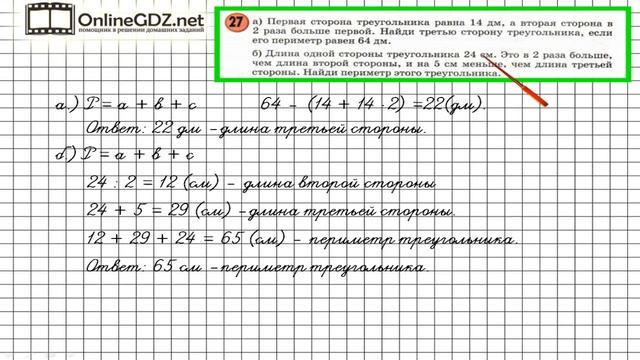 OnlineGDZ.net
помощник в решении домашних заданий
27
а) Первая сторона треугольника равна 14 дм, а вторая сторона в
2 раза больше первой. Найди третью сторону треугольника, если
его периметр равен 64 дм.
б) Длина одной стороны треугольника 24 см. Это в 2 раза больше,
чем длина второй стороны, и на 5 см меньше, чем длина третьей
стороны. Найди периметр этого треугольника.
а.) P = a + b + c 64 - (14 + 14 · 2) = 22(дм).
Ответ: 22 дм - длина третьей стороны.
б) P = a + b + c
24 : 2 = 12 (см) - длина второй стороны
24 + 5 = 29 (см) - длина третьей стороны.
12 + 29 + 24 = 65 (см) - периметр треугольника.
Ответ: 65 см - периметр треугольника.